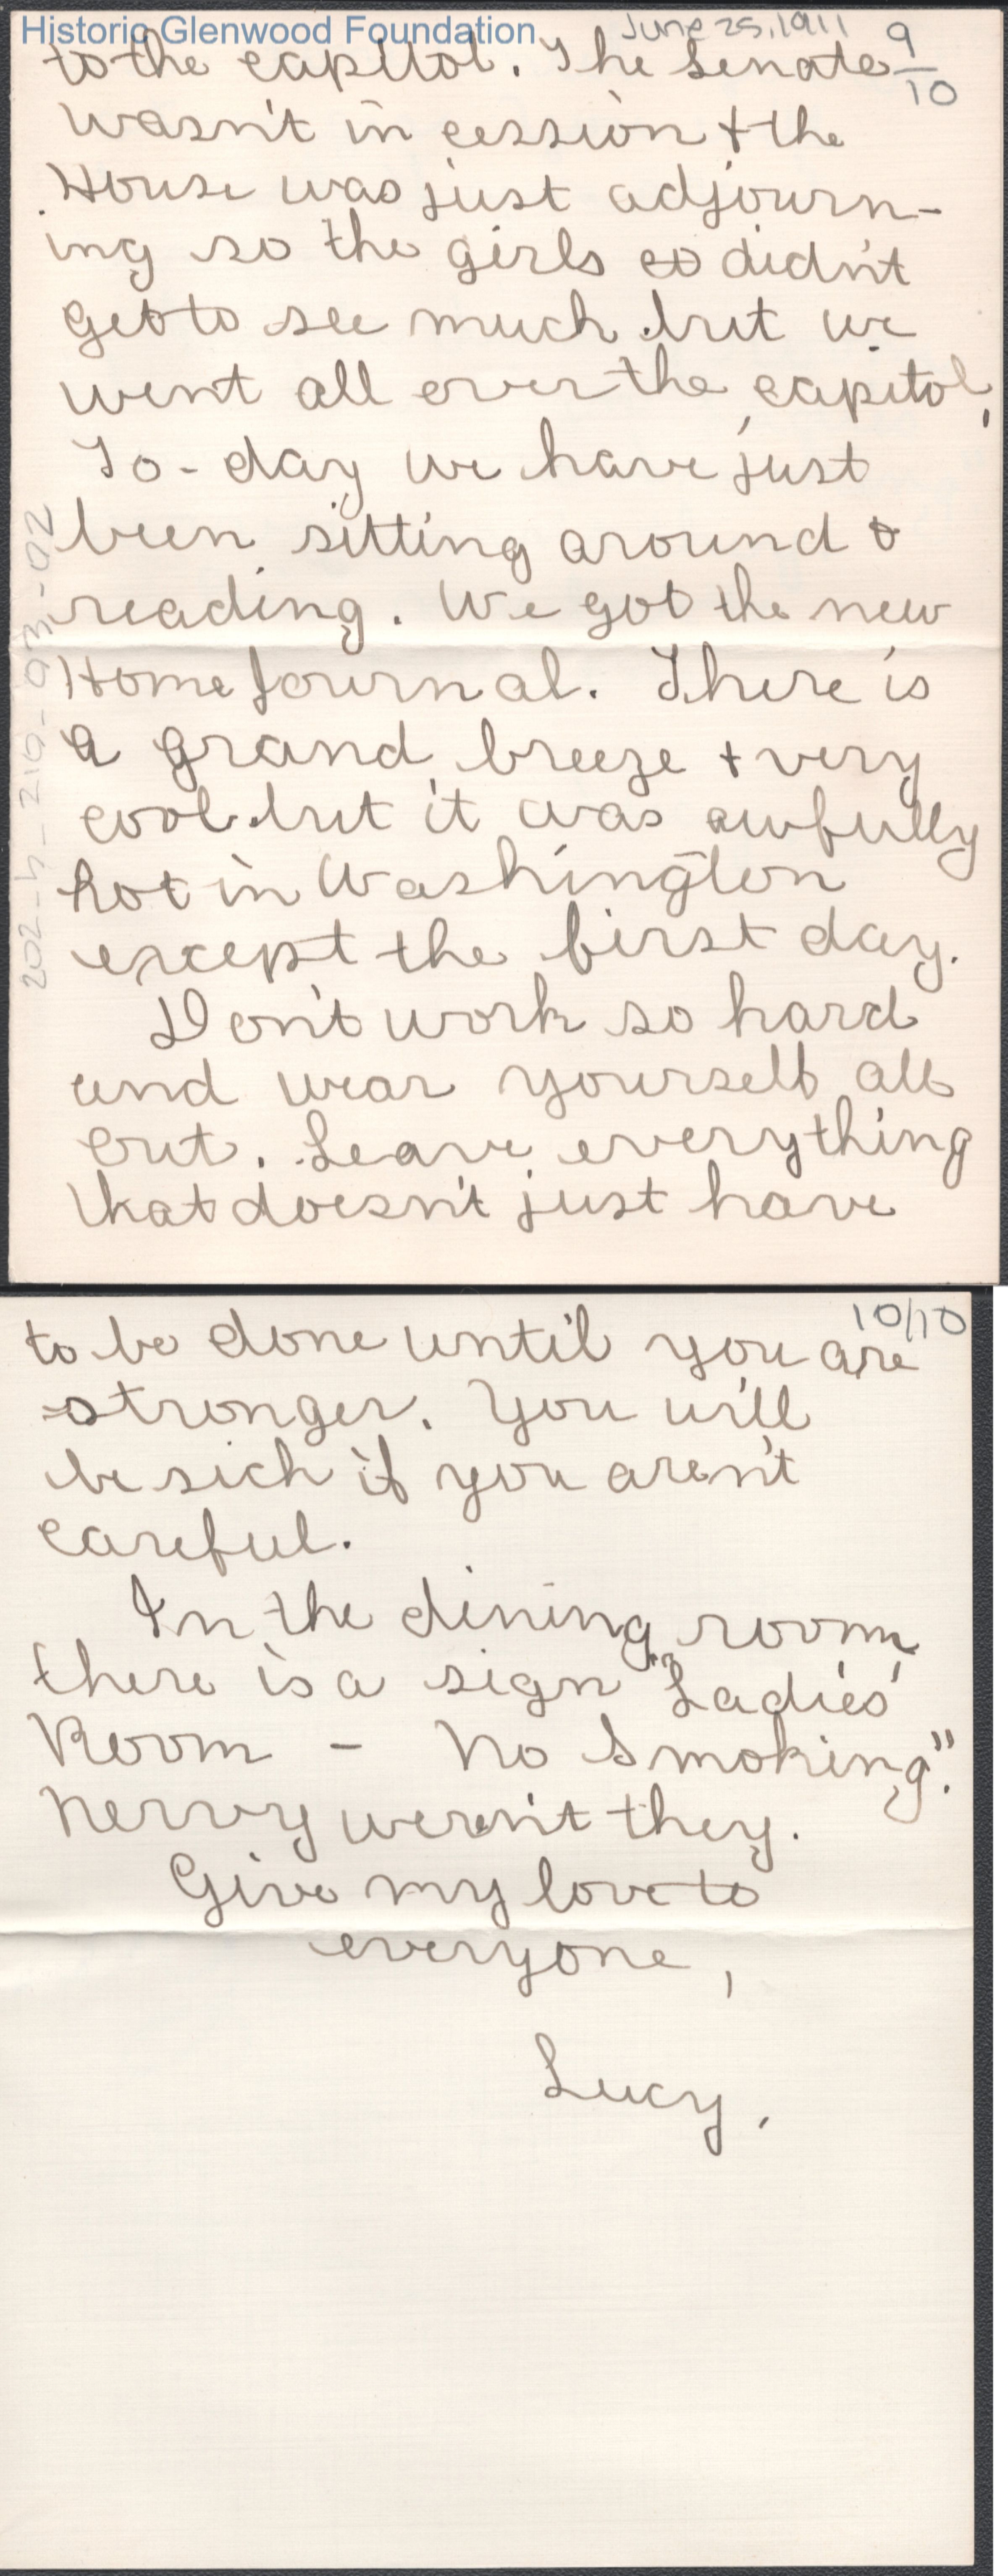 Historic Glenwood Foundation
June 25, 1911
9/10
to the capitol. The Senate
wasn't in cession + the
House was just adjourn-
ing so the girls so didn't
get to see much but we
went all over the capitol.
To-day we have just
been sitting around &
reading. We got the new
Home Journal. There is
a grand breeze + very
cool but it was awfully
hot in Washington
except the first day.
Don't work so hard
and wear yourself all
out. Leave everything
that doesn't just have
202-h-216-93-02
10/10
to be done until you are
stronger. You will
be sick if you aren't
careful.
In the dining room
there is a sign "Ladies'
Room - No Smoking".
Nervy weren't they.
Give my love to
everyone,
Lucy.